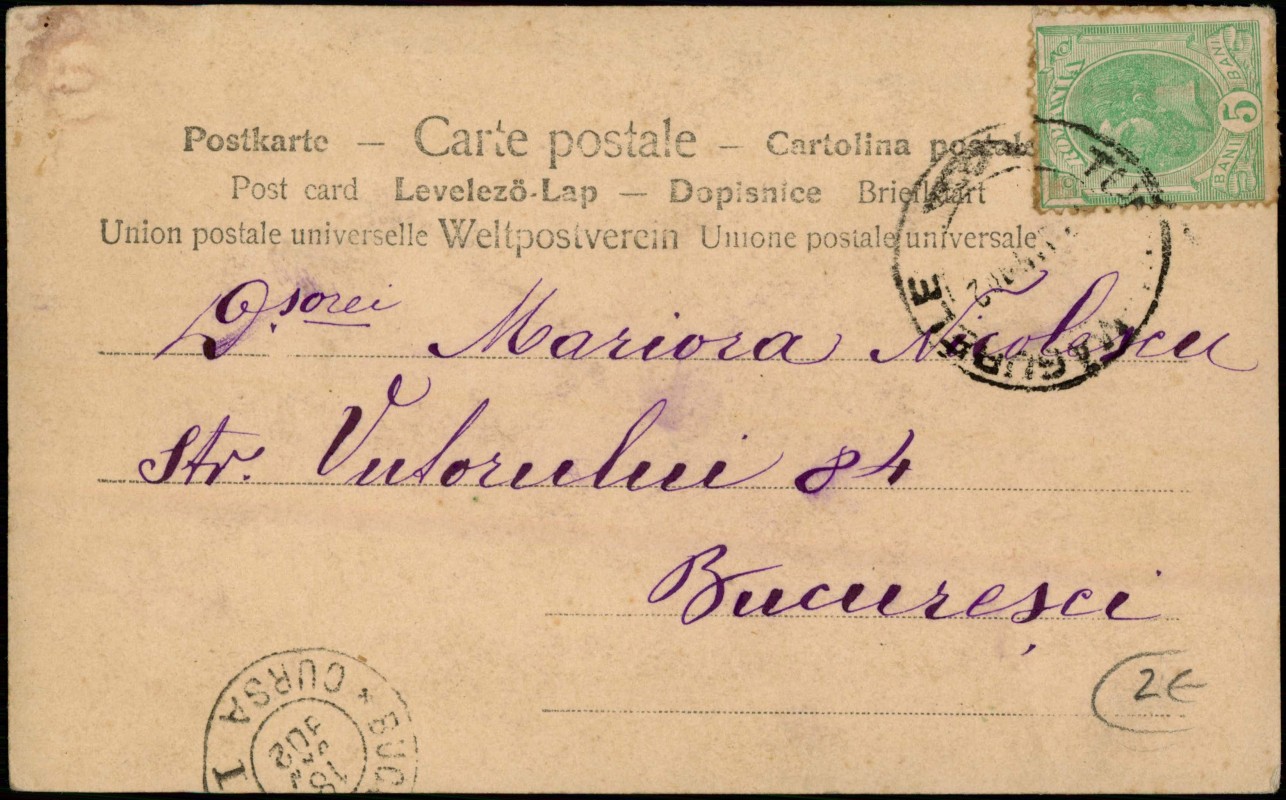 Postkarte – Carte postale – Cartolina postale
Post card Levelező-Lap – Dopisnice Briefkaart
Union postale universelle Weltpostverein Unione postale universale
ROMANIA
BANI 5 BANI
MĂGURELE
D.șorei Mariora Nicolescu
Str. Viitorului 84
Bucuresci
2€
BUC
CURSA I
902